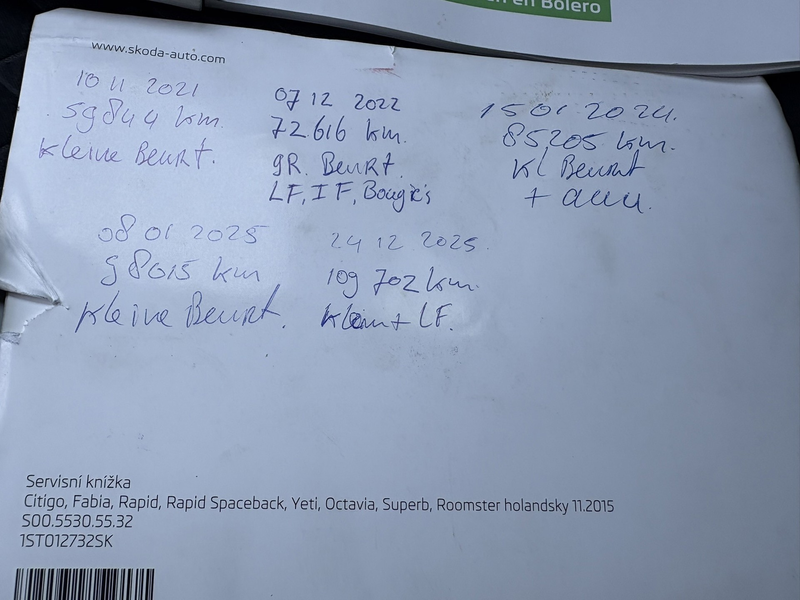 en Bolero
www.skoda-auto.com
10 11 2021
59844 km.
Kleine Beurt.
07 12 2022
72616 km.
gR. Beurt.
LF, IF, Bougie's
15 01 2024.
85,205 km.
KL Beurt
+ accu.
08 01 2025
98015 km
Kleine Beurt.
24 12 2025.
109 702 km.
Klein + LF.
Servisní knížka
Citigo, Fabia, Rapid, Rapid Spaceback, Yeti, Octavia, Superb, Roomster holandsky 11.2015
S00.5530.55.32
1ST012732SK